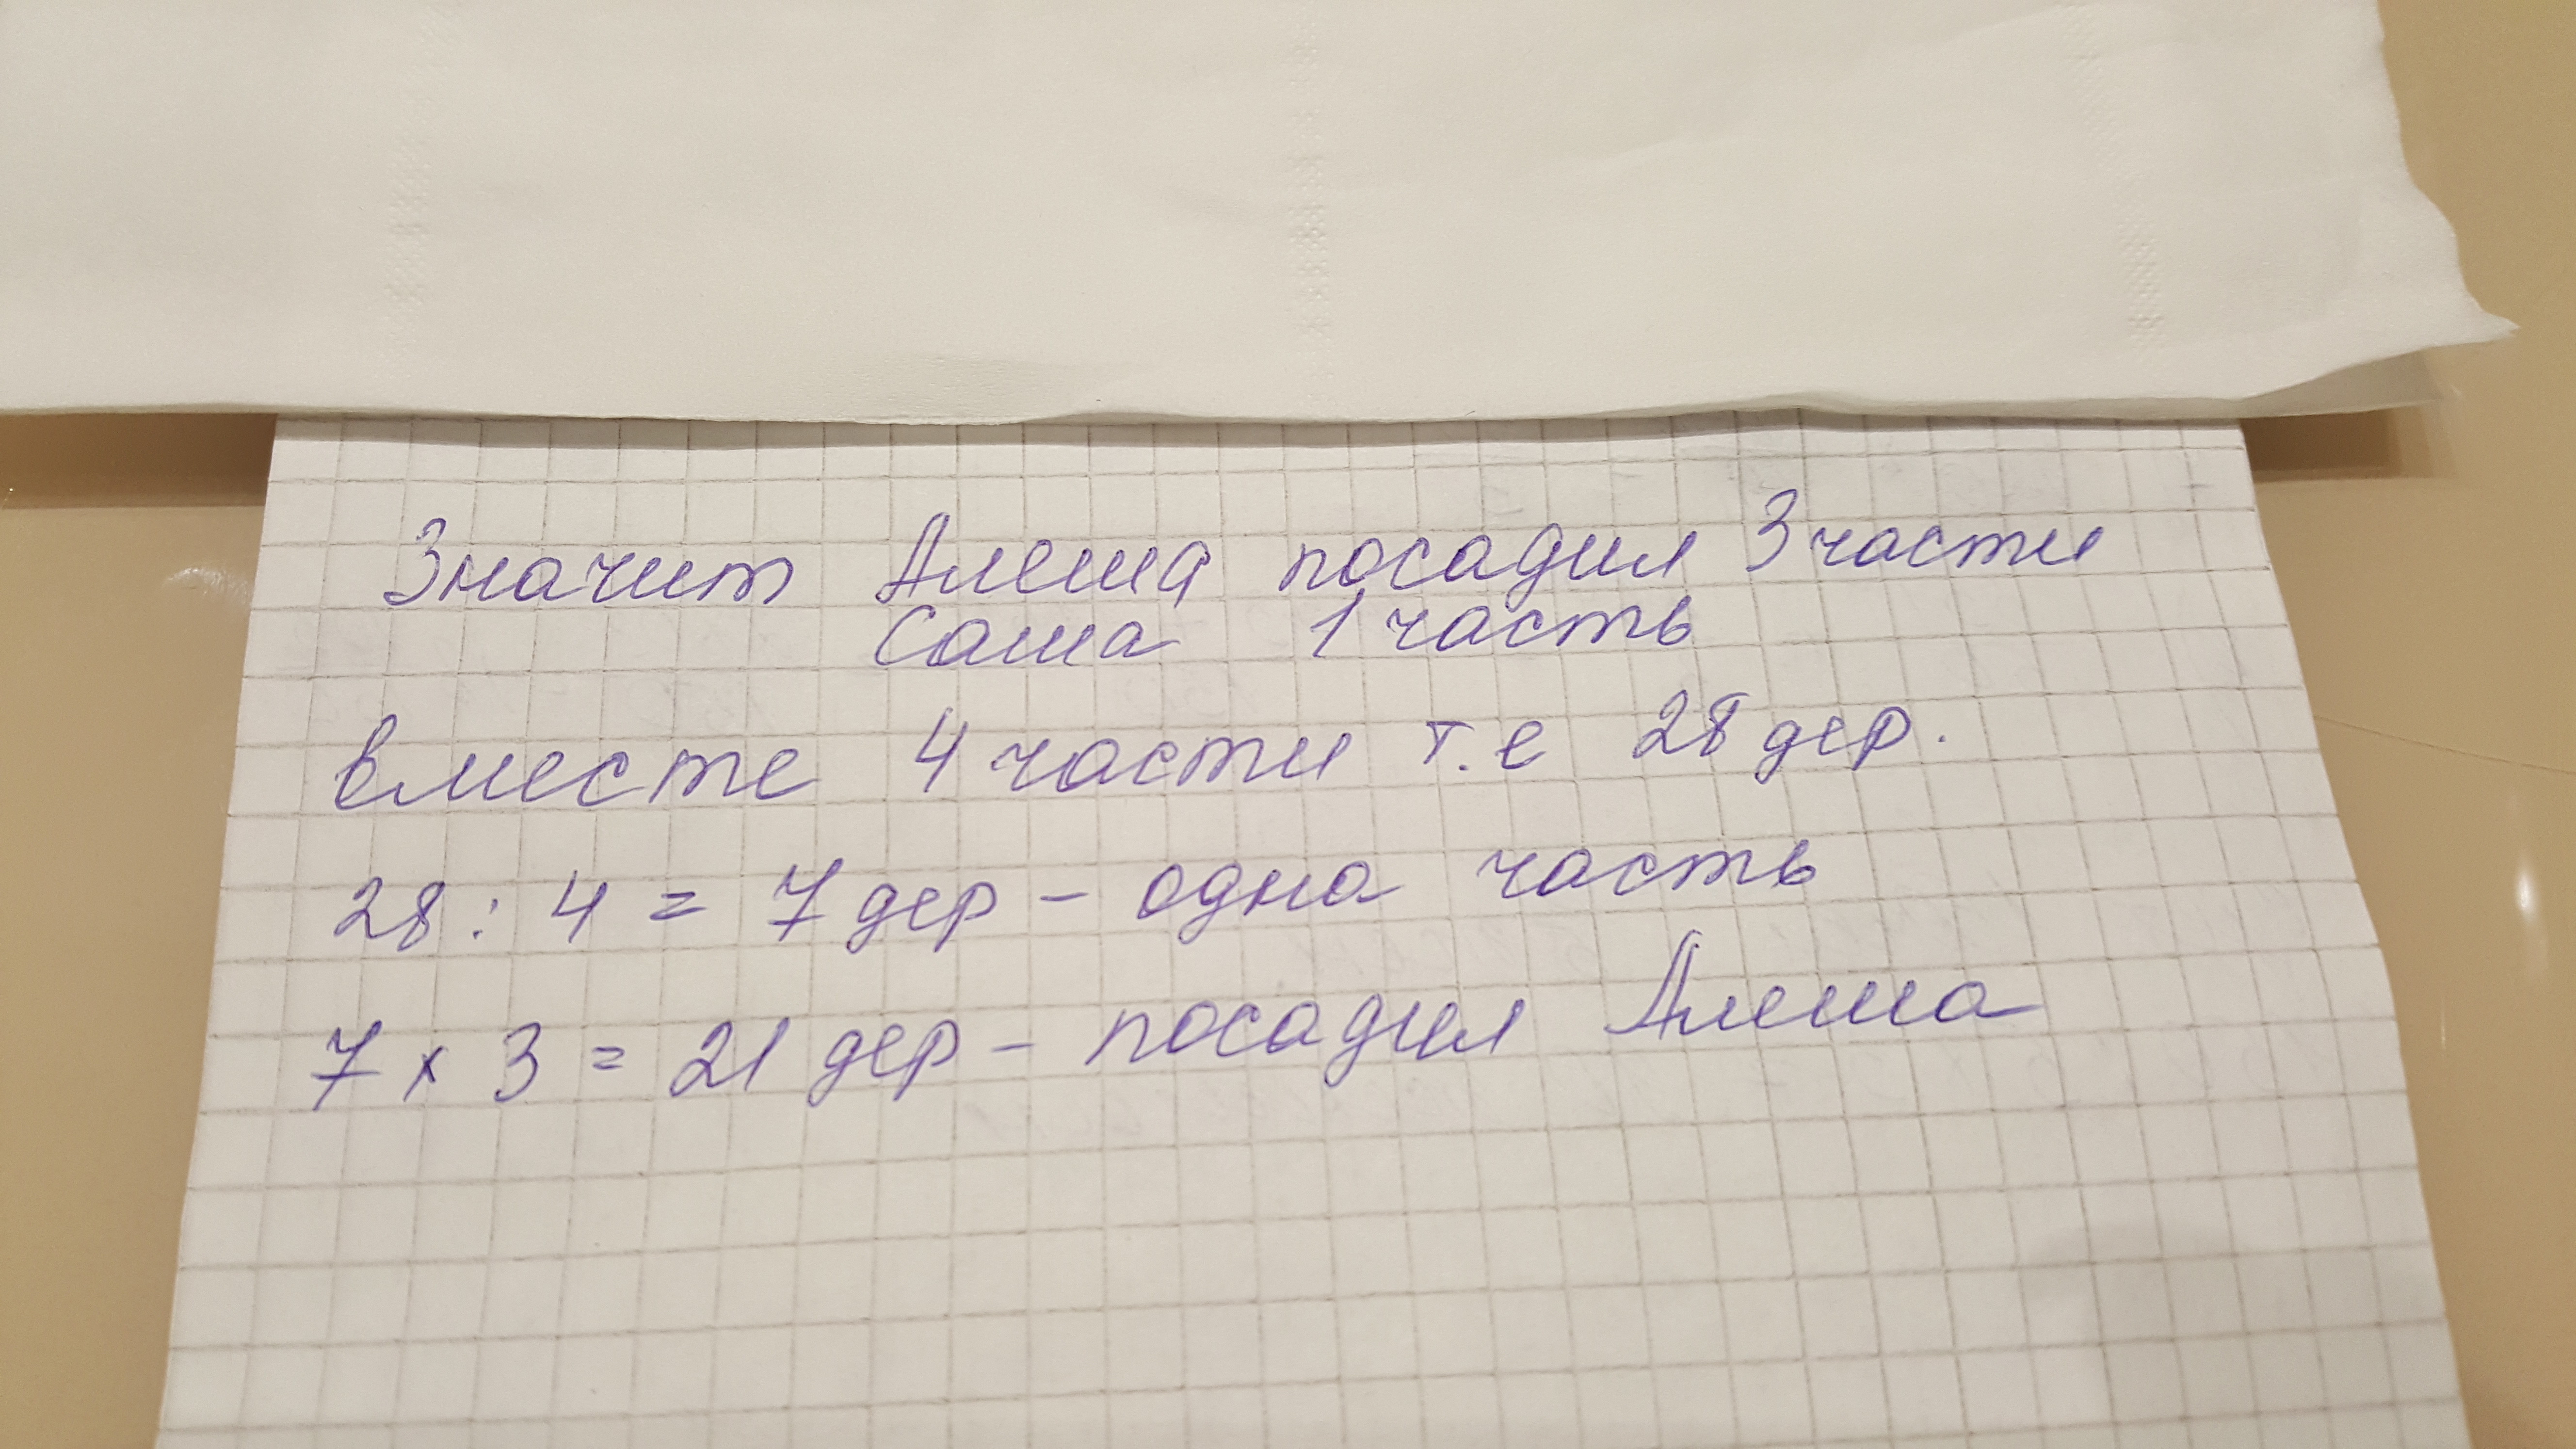 Значит Алеша посадил 3 части
Саша 1 часть
вместе 4 части т.е 28 дер.
28 : 4 = 7 дер - одна часть
7 х 3 = 21 дер - посадил Алеша